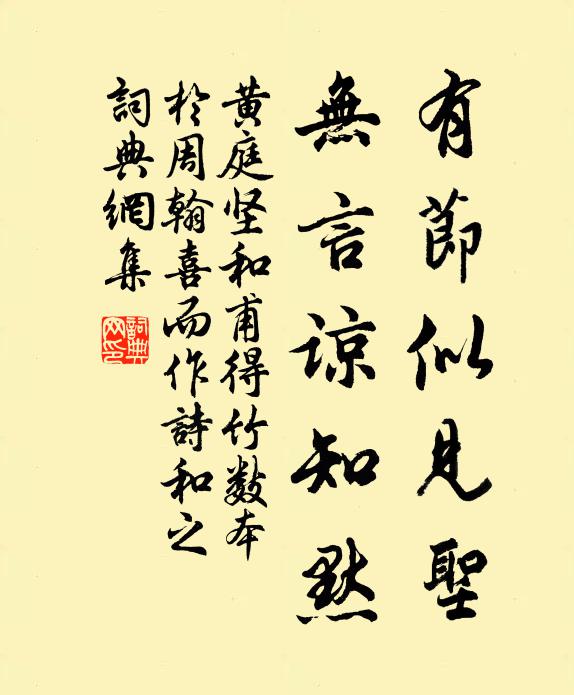 有節似見聖
無言諒知默
黄庭坚和甫得竹數本
於周翰喜而作詩和之
詞典網集
詞典
网印